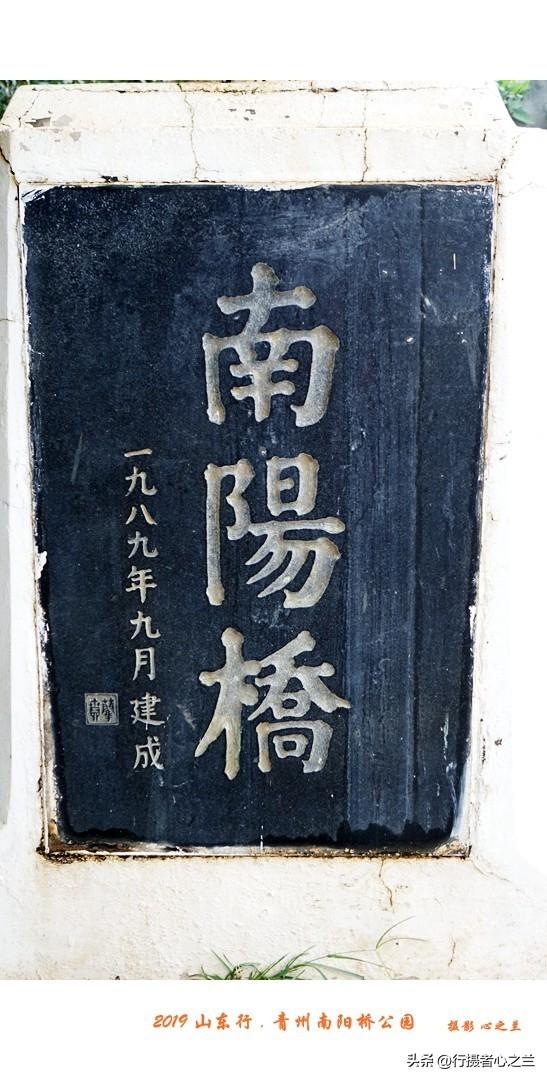 南陽橋
一九八九年九月建成
2019 山东行.青州南阳桥公园 摄影 心之兰
头条 @行摄者心之兰